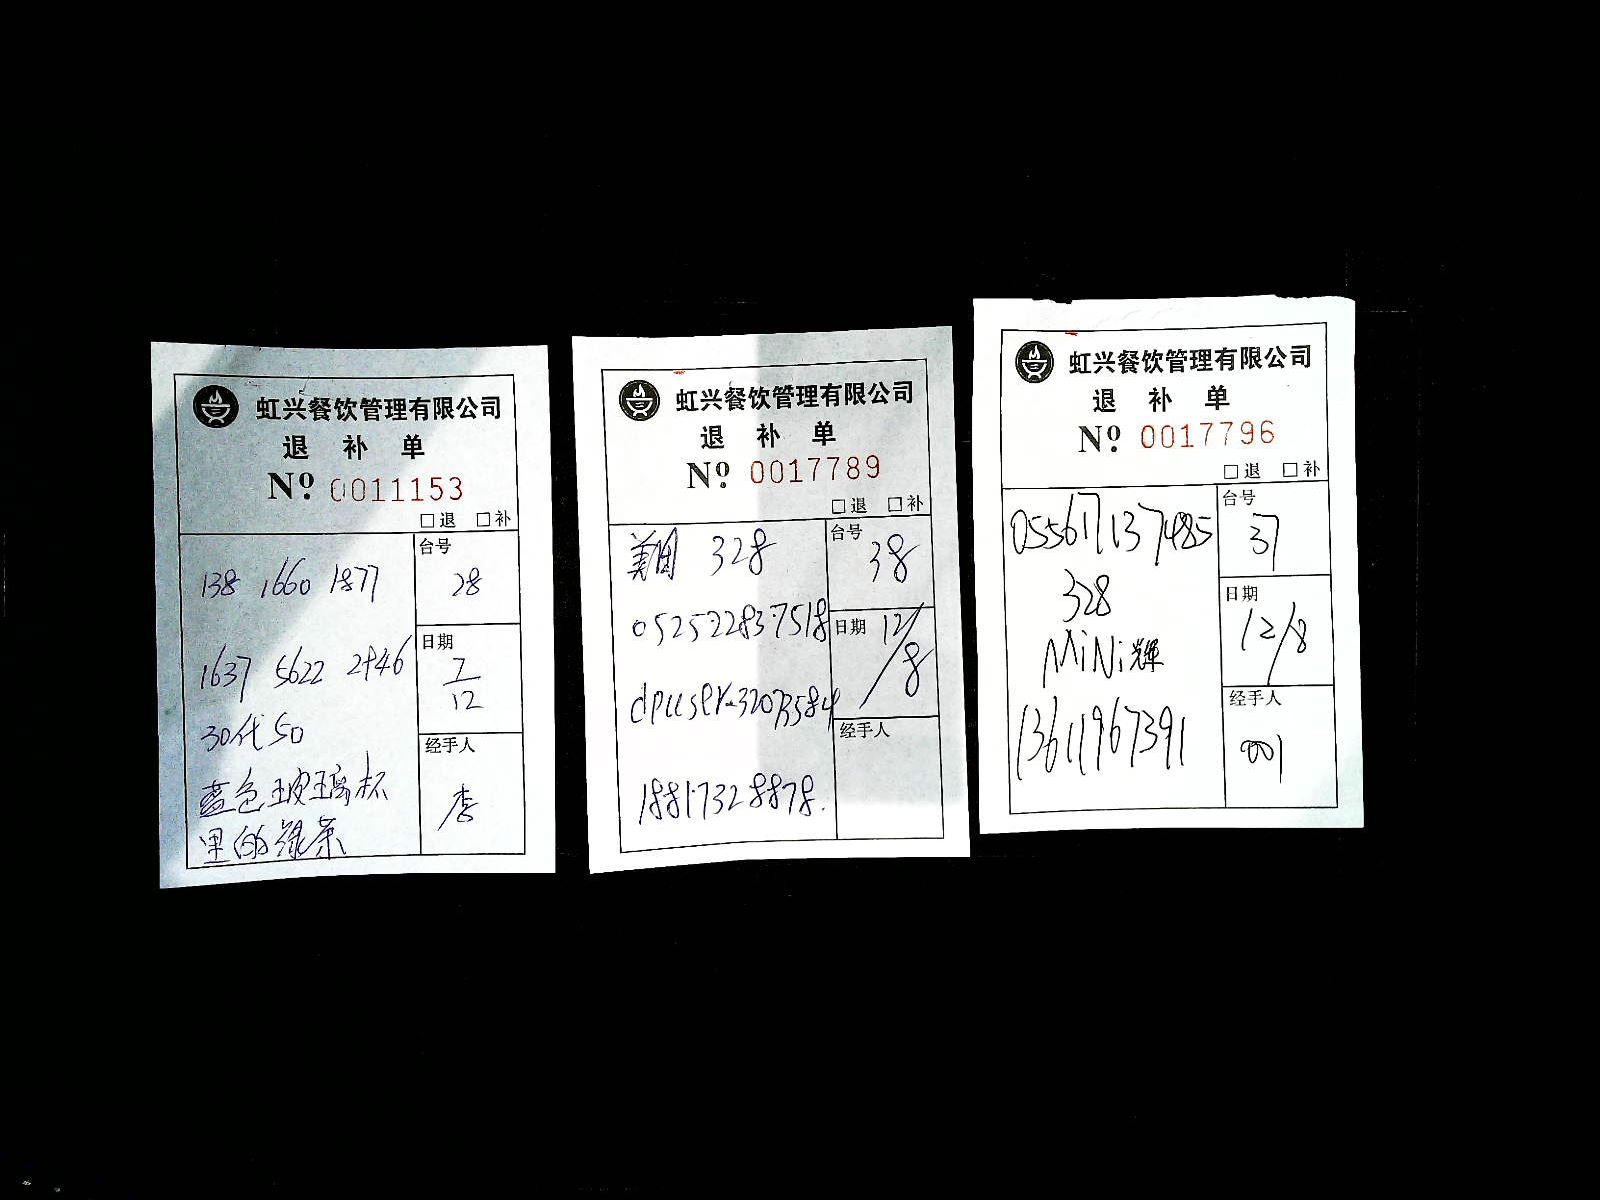 虹兴餐饮管理有限公司
退 补 单
Nº 0011153
□退 □补
138 1660 1877
1637 5622 2946
30代50
蓝色玻璃杯
里的绿茶
台号
28
日期
7/12
经手人
李
虹兴餐饮管理有限公司
退 补 单
Nº 0017789
□退 □补
美团 328
052522837518
dpuser-32073584
18817328878.
台号
38
日期 12/8
经手人
虹兴餐饮管理有限公司
退 补 单
Nº 0017796
□退 □补
055617137485
328
MiNi輝
13611967391
台号
37
日期
12/8
经手人
001